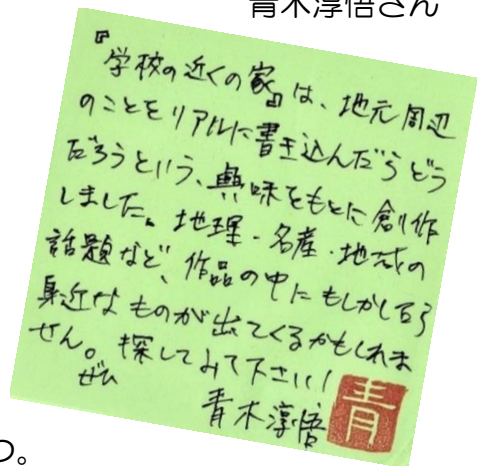 青木淳悟さん
『学校の近くの家』は、地元周辺
のことをリアルに書き込んだらどう
だろうという、興味をもとに創作
しました。地理・名産・地域の
話題など、作品の中にもしかしたら
身近なものが出てくるかもしれま
せん。探してみて下さい!
ぜひ
青木淳悟
青
つ。